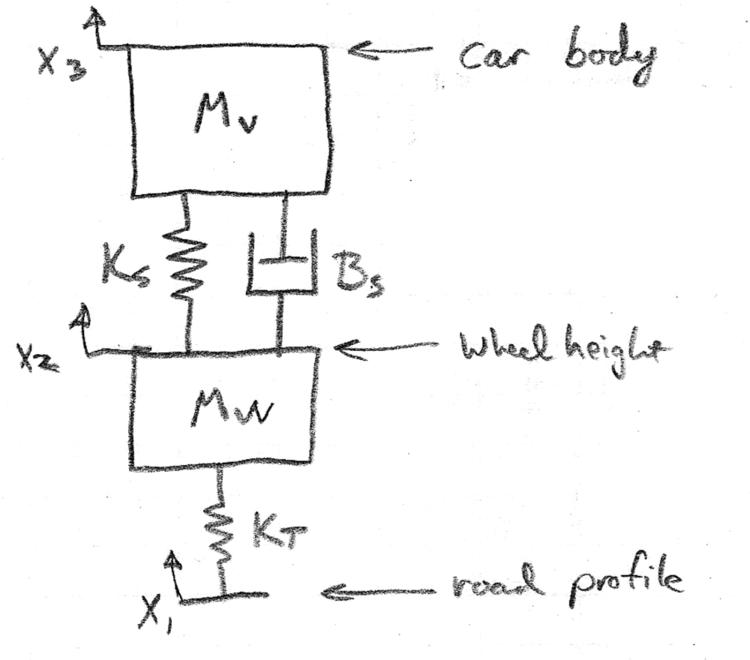 X3
car body
Mv
Ks
Bs
X2
Wheel height
Mw
KT
X1
road profile